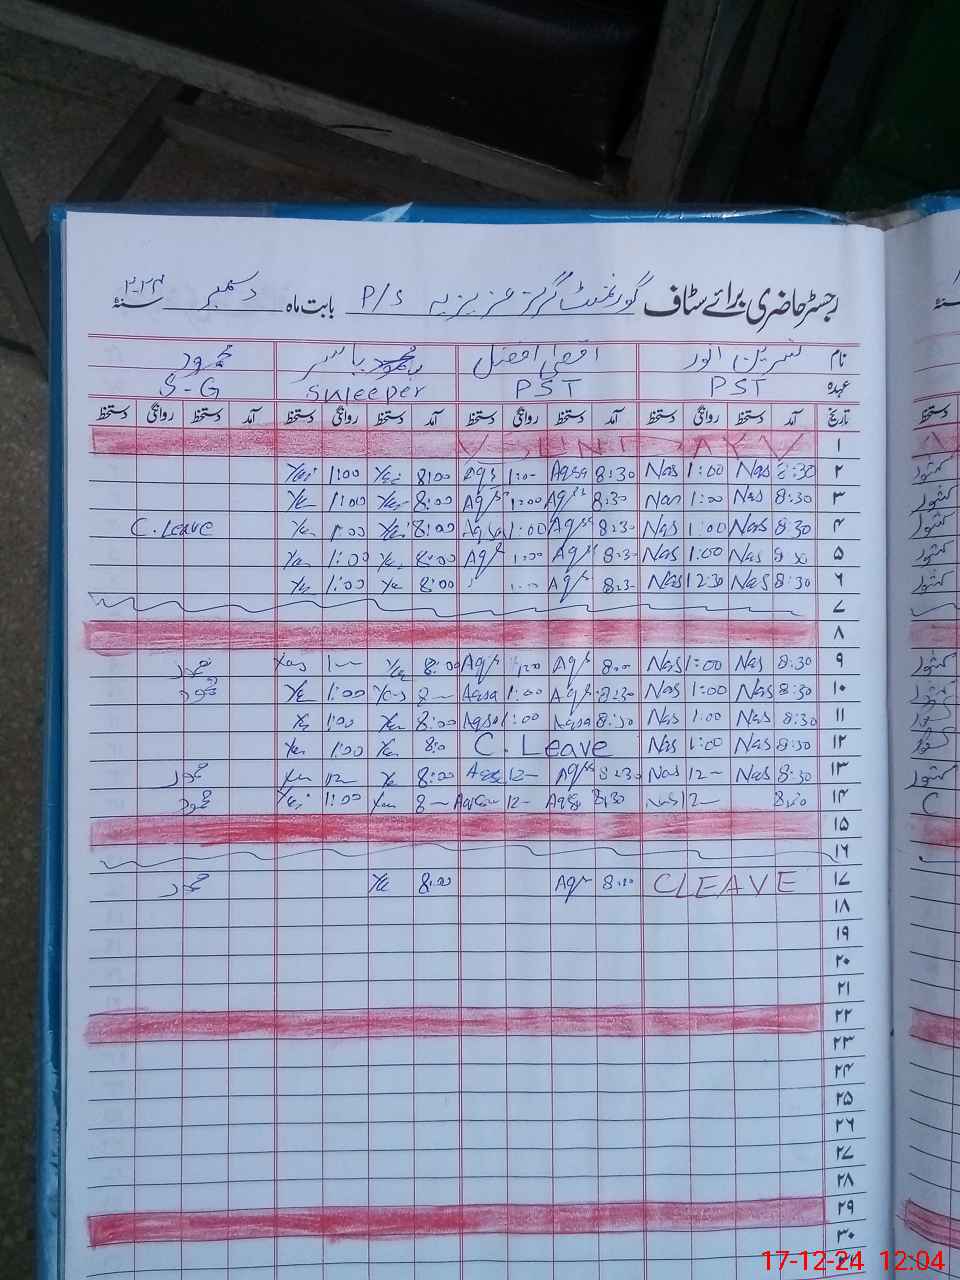 رجسٹر حاضری برائے سٹاف گورنمنٹ گرلز عزیزیہ P/S بابت ماہ دسمبر سنۂ ۲۰۲۴
نام نسرین انور اقصیٰ افضل یاسر محمود
عہدہ PST PST Sweeper S-G
تاریخ آمد دستخط روانگی دستخط آمد دستخط روانگی دستخط آمد دستخط روانگی دستخط آمد دستخط روانگی دستخط
۱ SUNDAY
۲ 8:30 Nas 1:00 Nas 8:30 Aqsa 1:00 Aqs 8:00 Yas 1:00 Yas
۳ 8:30 Nas 1:00 Nas 8:30 Aqs 1:00 Aqs 8:00 Yas 1:00 Yas
۴ 8:30 Nas 1:00 Nas 8:30 Aqsa 1:00 Aqsa 8:00 Yas 1:00 Yas C.Leave
۵ 8:30 Nas 1:00 Nas 8:30 Aqs 1:00 Aqs 8:00 Yas 1:00 Yas
۶ 8:30 Nas 12:30 Nas 8:30 Aqs 8:00 Yas 1:00 Yas
۷
۸
۹ 8:30 Nas 1:00 Nas 8:00 Aqs 1:00 Aqs 8:00 Yas 1:00 Yas محمود
۱۰ 8:30 Nas 1:00 Nas 8:30 Aqs 1:00 Aqsa 8:00 Yas 1:00 Yas محمود
۱۱ 8:30 Nas 1:00 Nas 8:30 Aqsa 1:00 Aqsa 8:00 Yas 1:00 Yas
۱۲ 8:30 Nas 1:00 Nas C.Leave 8:0 Yas 1:00 Yas
۱۳ 8:30 Nas 12- Nas 8:30 Aqs 12- Aqsa 8:00 Yas 12- Yas محمود
۱۴ 8:30 12- Nas 8:30 Aqsa 12- Aqsa 8- Yas 1:00 Yas محمود
۱۵
۱۶
۱۷ CLEAVE 8:00 Aqs 8:00 Yas محمود
۱۸
۱۹
۲۰
۲۱
۲۲
۲۳
۲۴
۲۵
۲۶
۲۷
۲۸
۲۹
۳۰
17-12-24 12:04